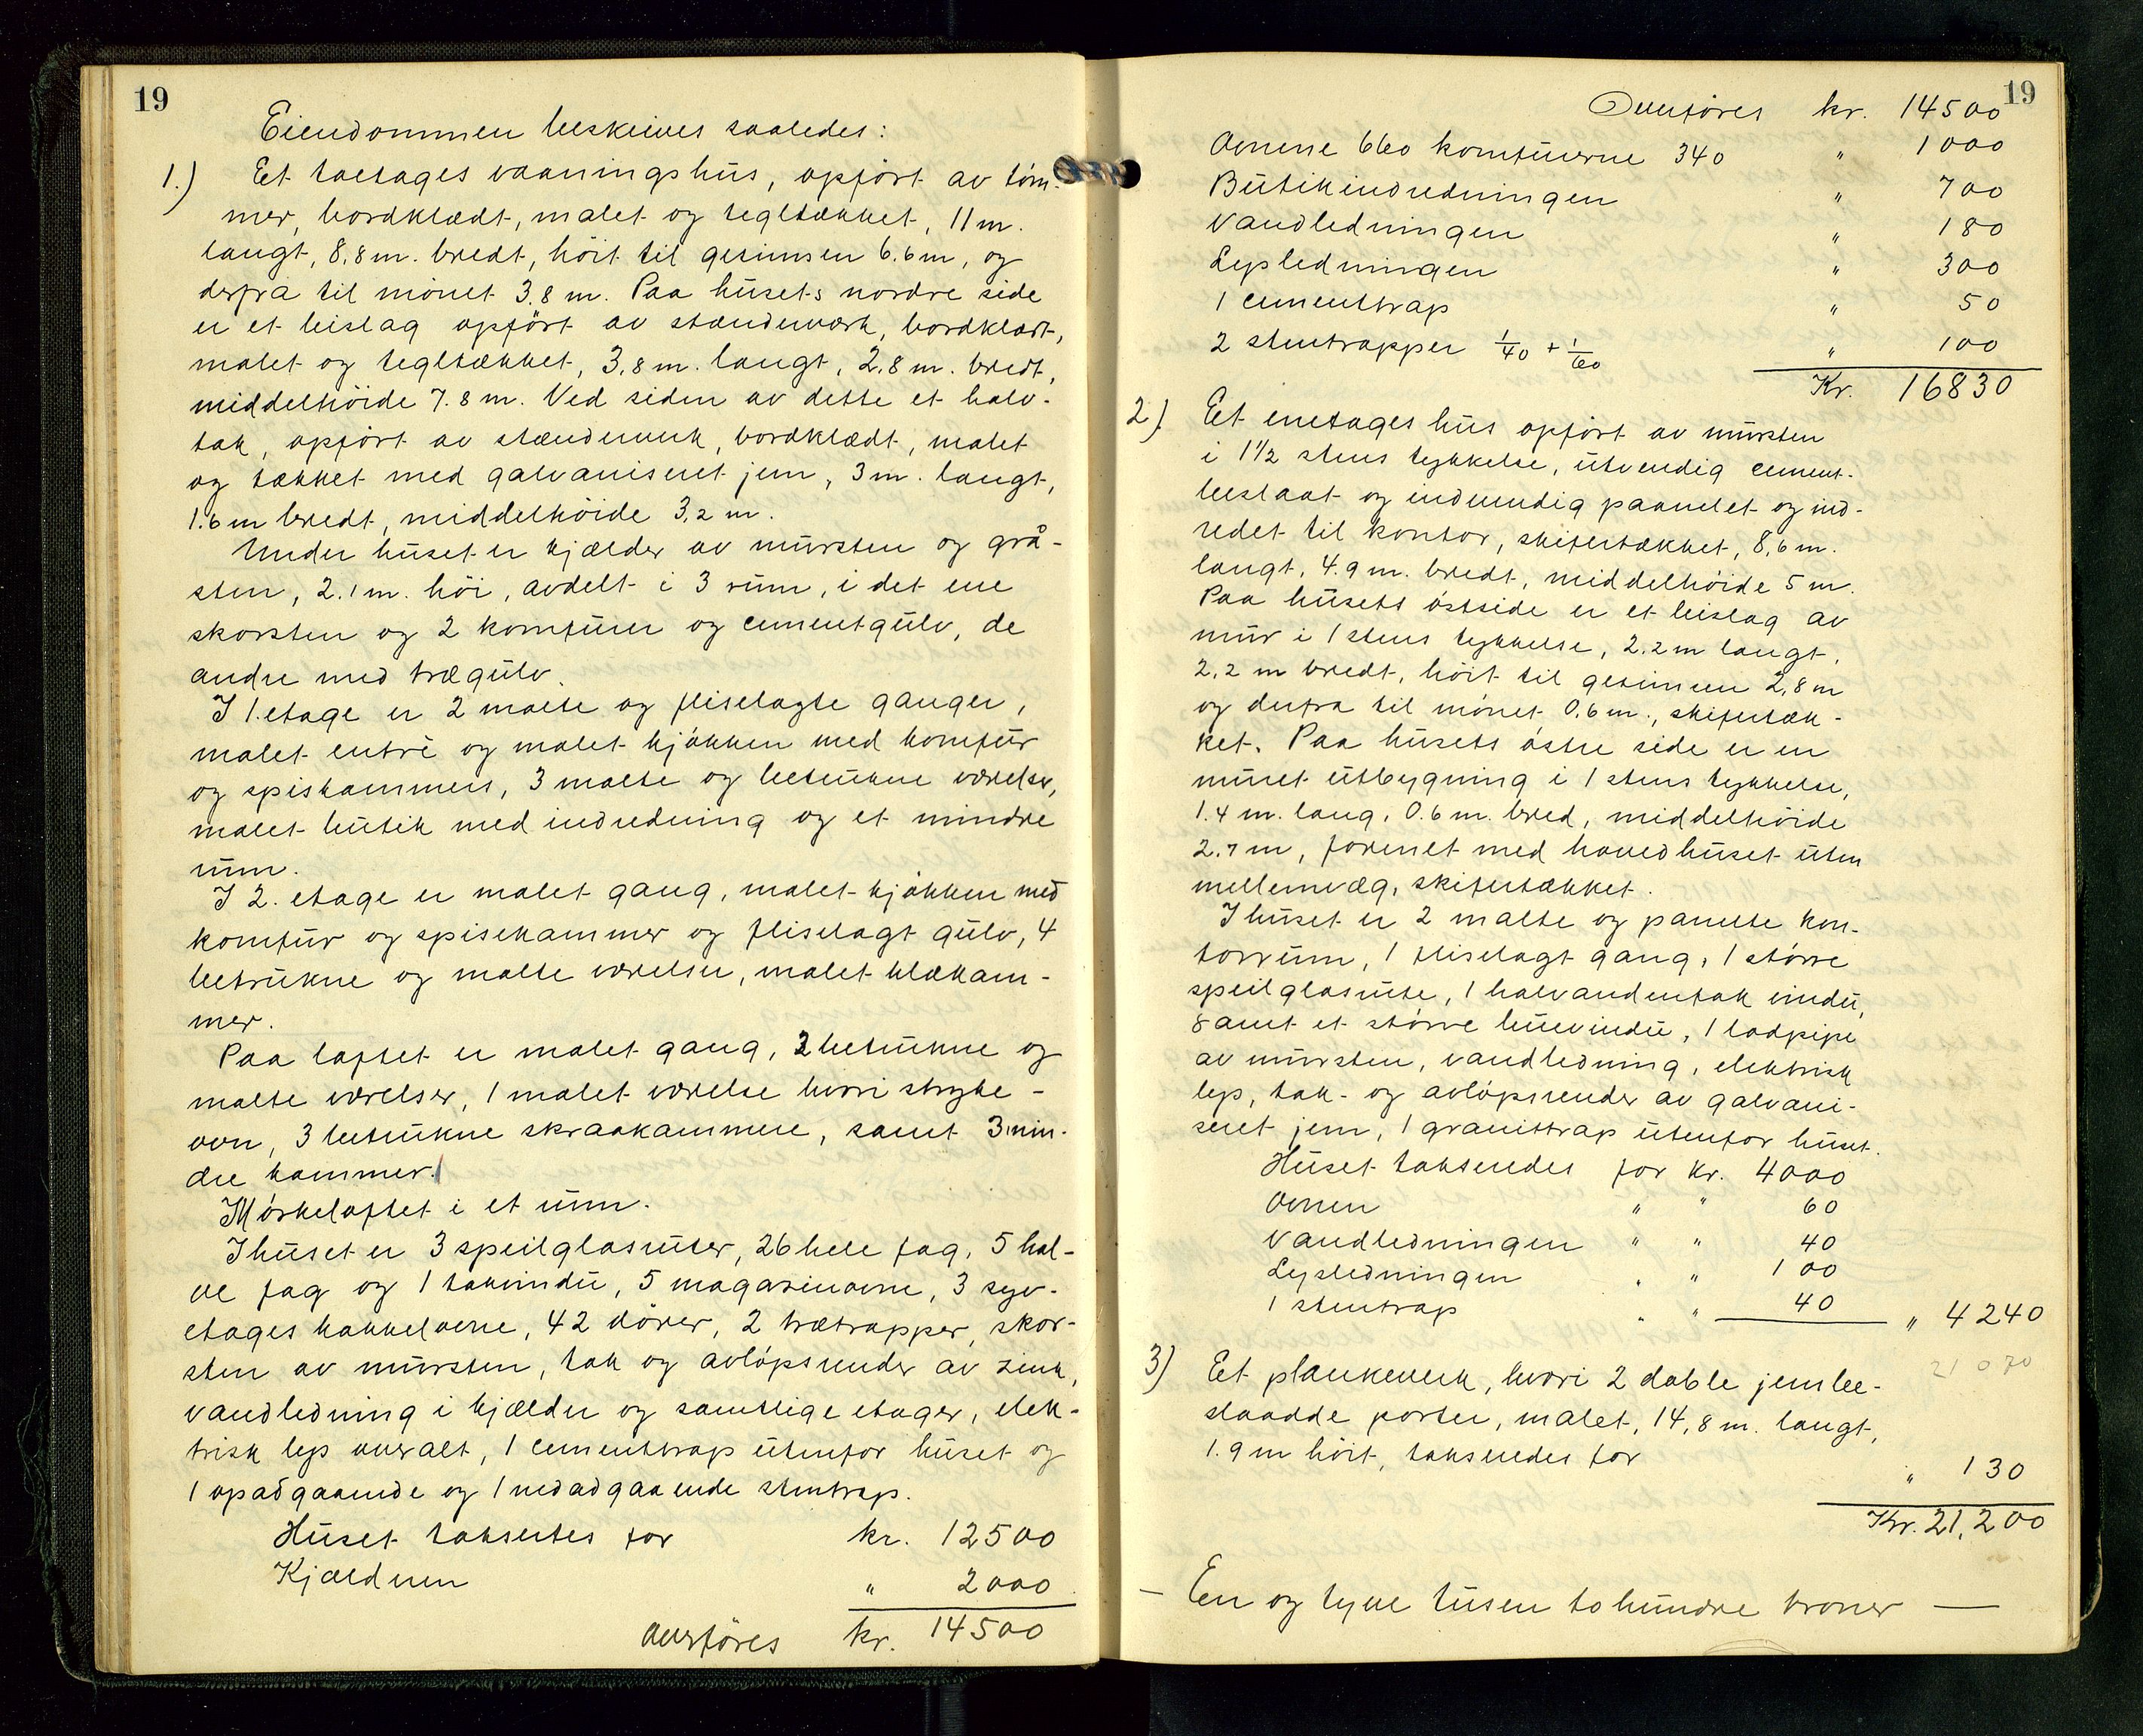 19
Eiendommen beskrives saaledes:
1.) Et toetages vaaningshus, opført av tøm-
mer, bordklædt, malet og tegltækket, 11 m.
langt, 8.8 m. bredt, höit til gesimsen 6.6 m, og
derfra til mönet 3.8 m. Paa husets nordre side
er et bislag opført av stænderværk, bordklædt,
malet og tegltækket, 3.8 m. langt, 2.8 m. bredt,
middelhöide 7.8 m. Ved siden av dette et halv-
tak, opført av stænderverk, bordklædt, malet
og tækket med galvaniseret jern, 3 m. langt,
1.6 m bredt, middelhöide 3.2 m.
Under huset er kjælder av mursten og grå-
sten, 2.1 m. höi, avdelt i 3 rum, i det ene
skorsten og 2 komfurer og cementgulv, de
andre med trægulv.
I 1. etage er 2 malte og fliselagte ganger,
malet entré og malet kjökken med komfur
og spiskammers, 3 malte og betrukne værelser,
malet butik med indredning og et mindre
rum.
I 2. etage er malet gang, malet kjökken med
komfur og spisekammer og fliselagt gulv, 4
betrukne og malte værelser, malet klækam-
mer.
Paa loftet er malet gang, 2 betrukne og
malte værelser, 1 malet værelse hvori stryke-
ovn, 3 betrukne skraakammere, samt 3 min-
dre kammer.
Mörkeloftet i et rum.
I huset er 3 speilglasruter, 26 hele fag, 5 hal-
ve fag og 1 takvindu, 5 magasinovne, 3 syv-
etages kakkelovne, 42 dörer, 2 trætrapper, skor-
sten av mursten, tak og avlöpsrender av zink,
vandledning i kjælder og samtlige etager, elek-
trisk lys overalt, 1 cementtrap utenfor huset og
1 opadgaaende og 1 nedadgaaende stentrap.
Huset takseres for kr. 12500
Kjælderen " 2000
Overföres kr. 14500
19
Overföres kr. 14500
Ovnene 660 komfurerne 340 " 1000
Butikindredningen " 700
Vandledningen " 180
Lysledningen " 300
1 cementtrap " 50
2 stentrapper 1/40 + 1/60 " 100
Kr. 16830
2.) Et enetages hus opført av mursten
i 1 1/2 stens tykkelse, utvendig cement-
beslaat og indvendig paanelet og ind-
redet til kontor, skifertækket, 8.6 m.
langt, 4.9 m. bredt, middelhöide 5 m.
Paa husets östside er et bislag av
mur i 1 stens tykkelse, 2.2 m langt,
2.2 m bredt, höit til gesimsen 2.8 m
og derfra til mönet 0.6 m., skifertæk-
ket. Paa husets östre side er en
muret utbygning i 1 stens tykkelse,
1.4 m. lang, 0.6 m. bred, middelhöide
2.7 m, forenet med hovedhuset uten
mellemvæg, skifertækket.
I huset er 2 malte og panelte kon-
torrum, 1 fliselagt gang, 1 større
speilglasrute, 1 halvandenfak vindu,
samt et större buevindu, 1 lodpipe
av mursten, vandledning, elektrisk
lys, tak- og avlöpsrender av galvani-
seret jern, 1 granittrap utenfor huset.
Huset takseredes for kr. 4000
Ovnen " " 60
Vandledningen " " 40
Lysledningen " " 100
1 stentrap " " 40 " 4240
21070
3) Et plankeverk, hvori 2 doble jernbe-
slaadde porter, malet, 14,8 m. langt,
1.9 m höit, takseredes for " 130
Kr. 21,200
— En og tyve tusen to hundre kroner —